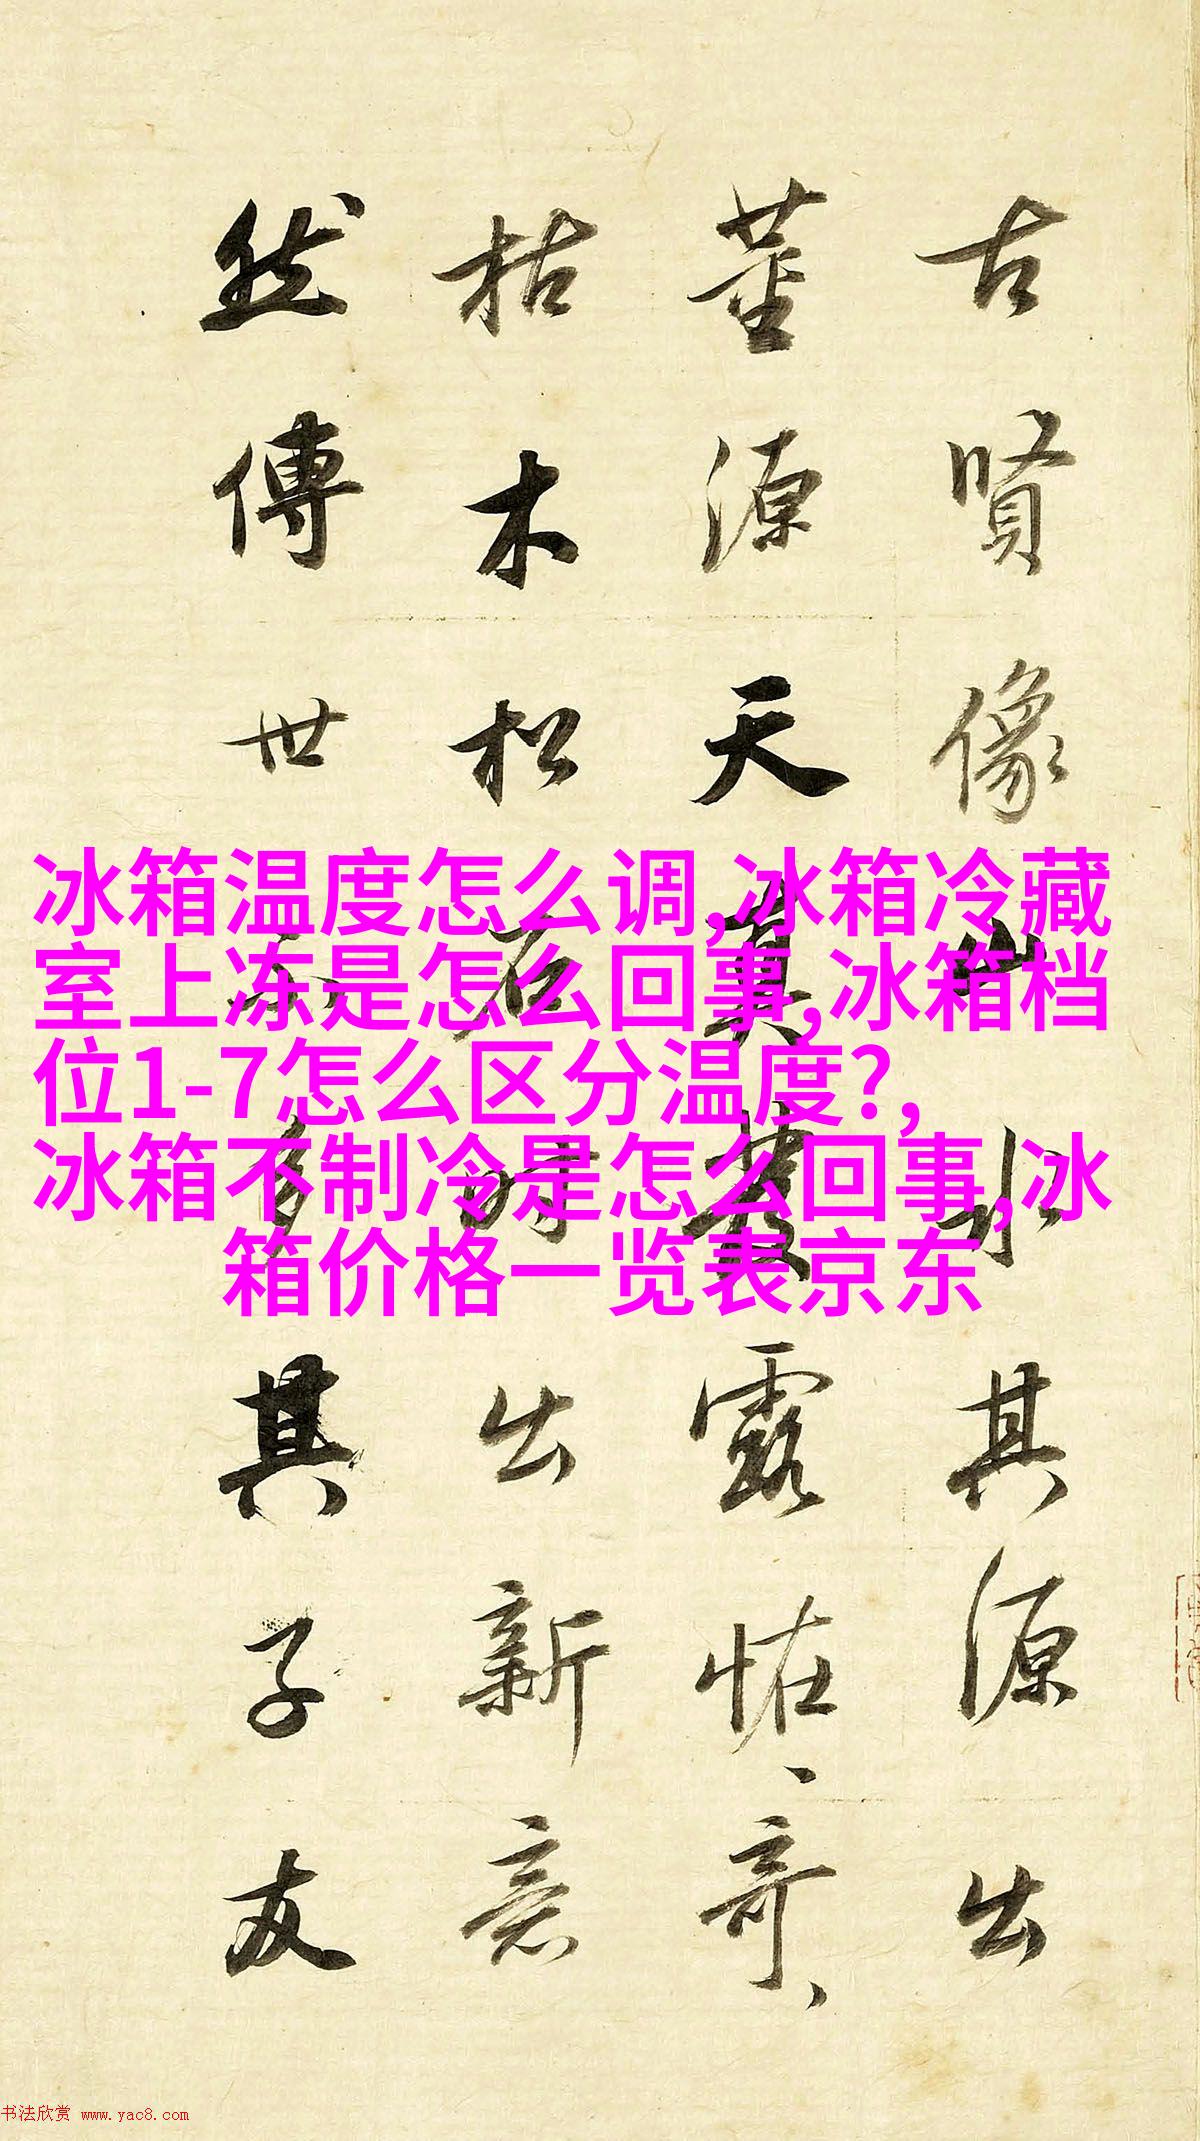 古賢像山水其源出
董源天真發露恠、奇、
枯木松石時出新意
然傳世不多其子友
冰箱温度怎么调,冰箱冷藏
室上冻是怎么回事,冰箱档
位1-7怎么区分温度?,
冰箱不制冷是怎么回事,冰
箱价格一览表京东
书法欣赏 www.yac8.com